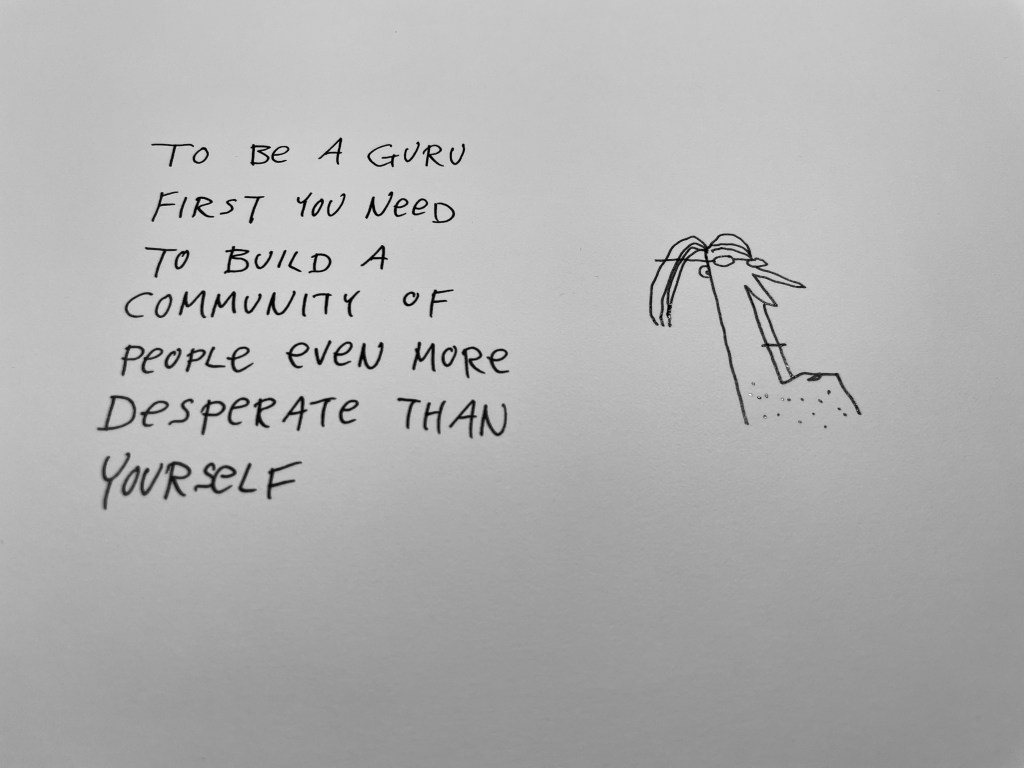 TO BE A GURU
FIRST YOU NEED
TO BUILD A
COMMUNITY OF
PEOPLE EVEN MORE
DESPERATE THAN
YOURSELF